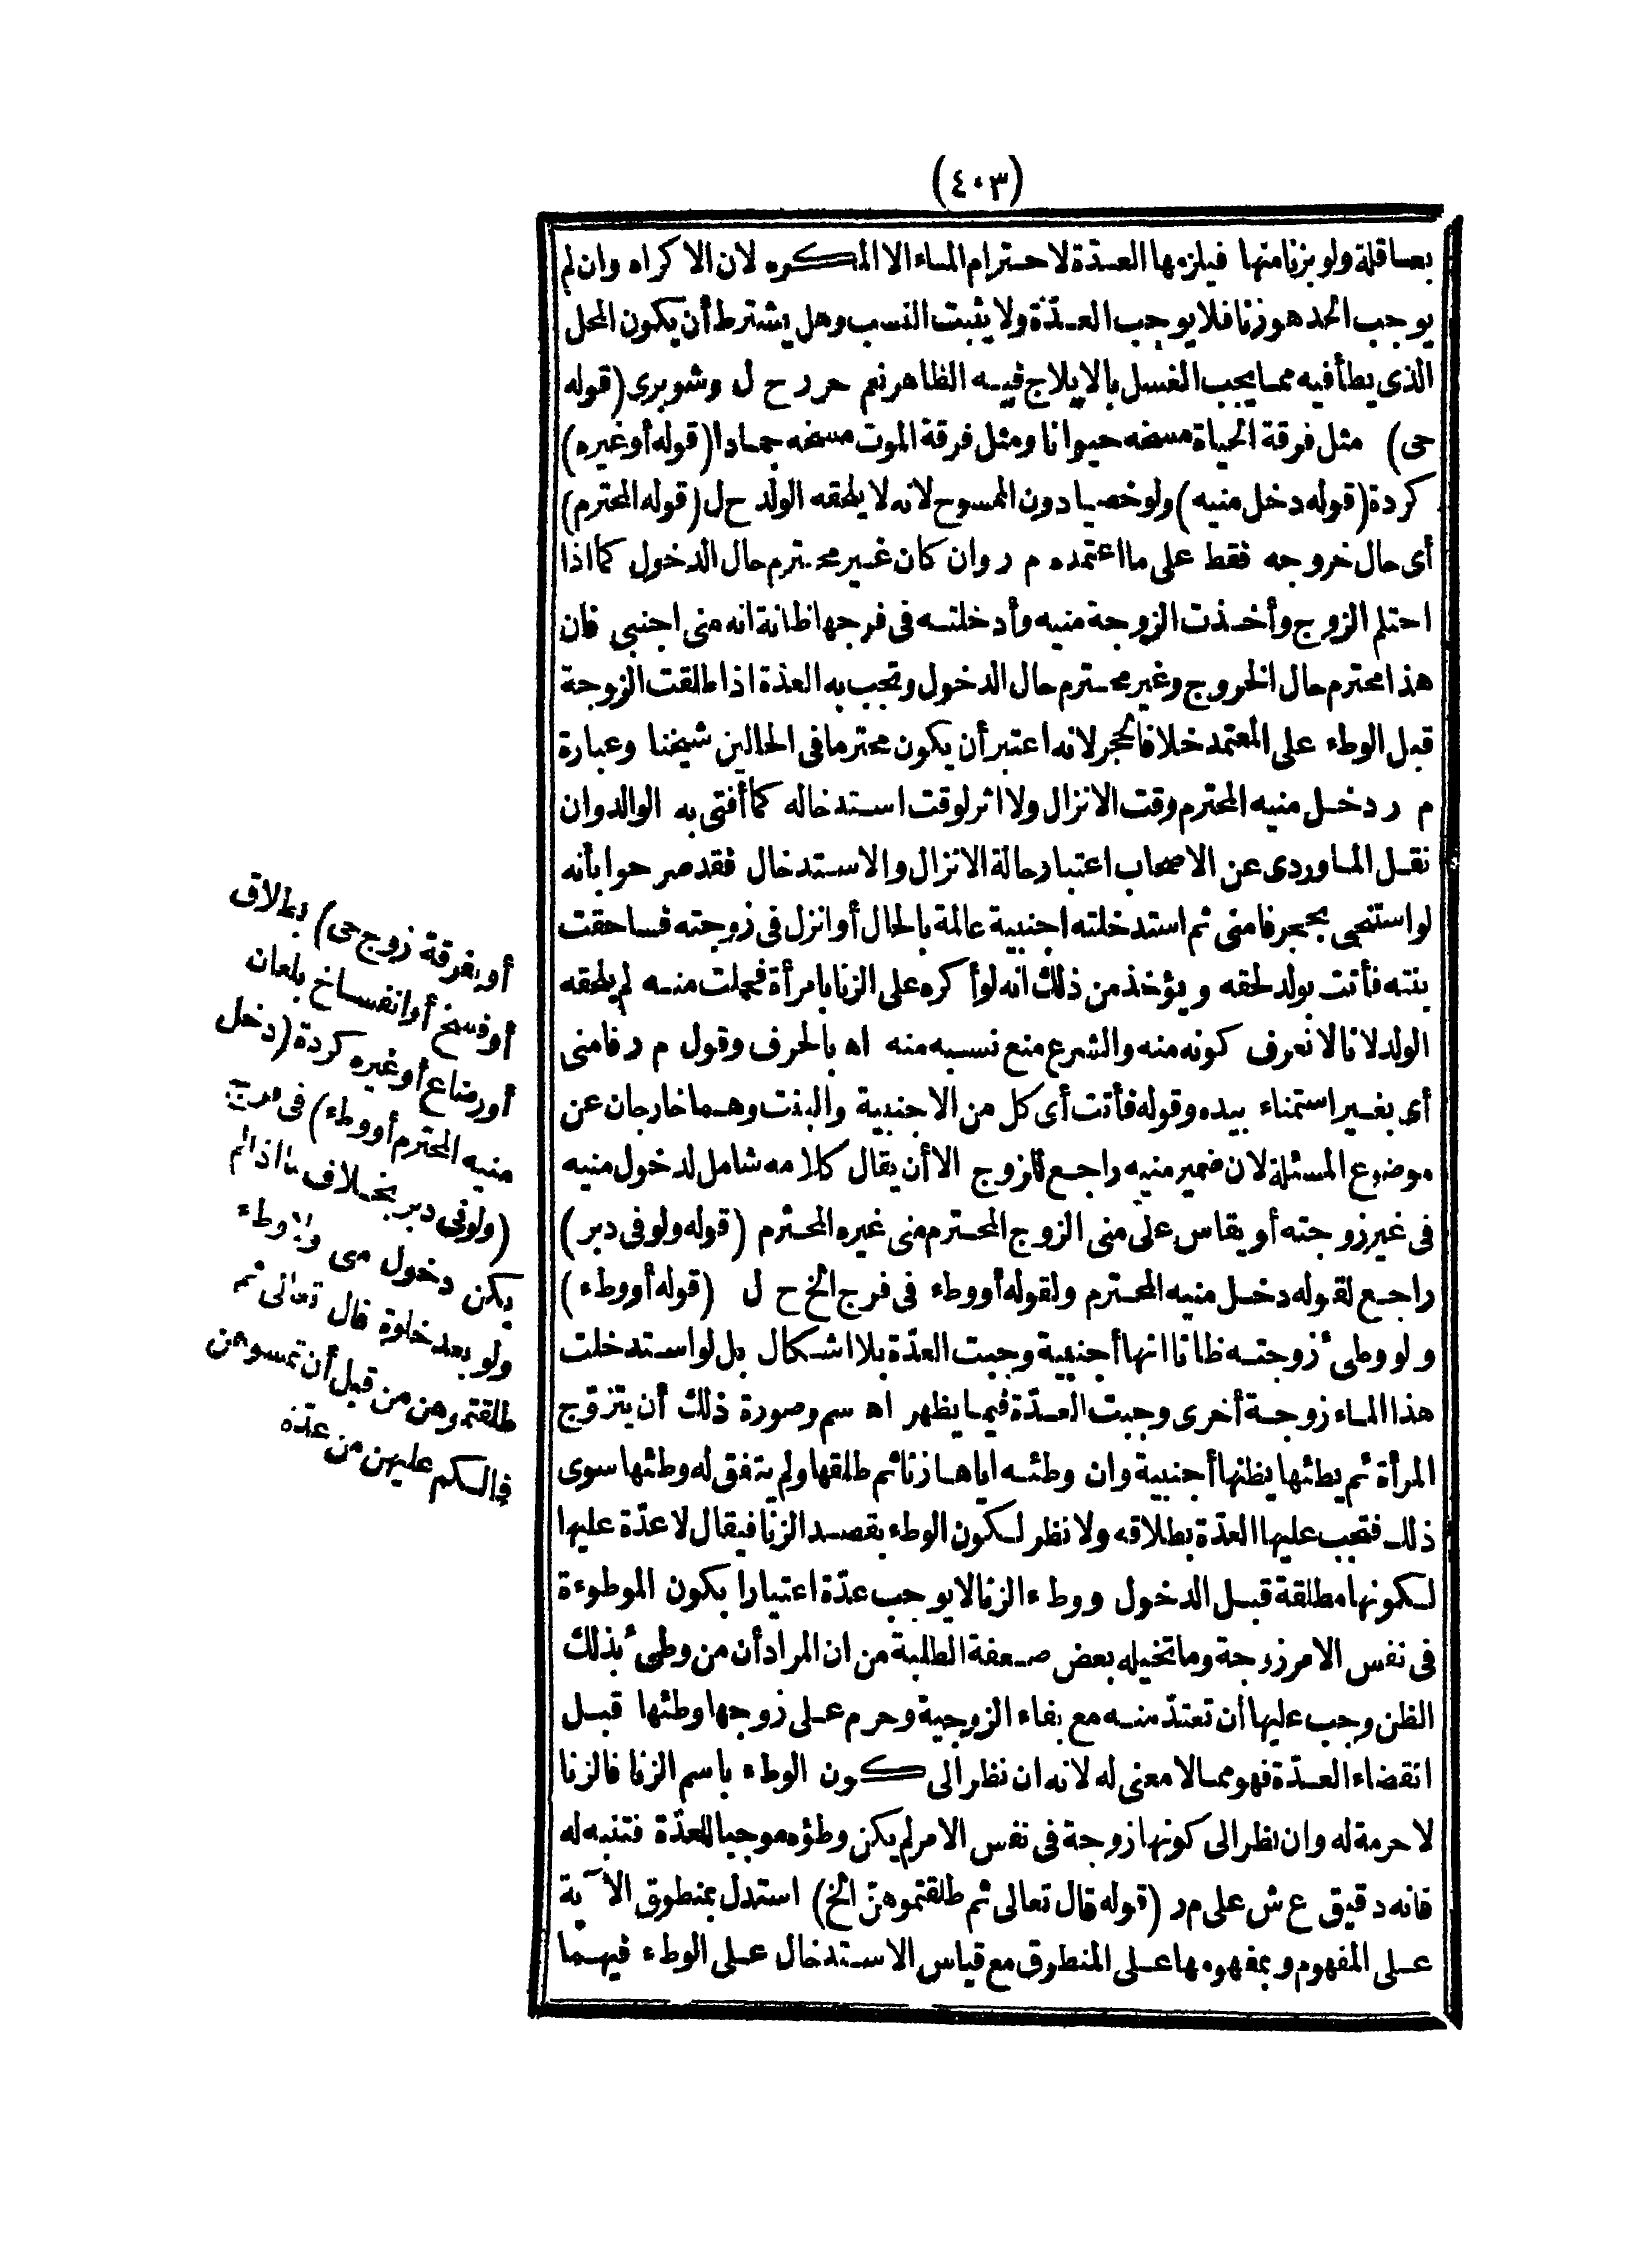 (٤٠٣)
بعاقلة ولو بزنا منها فيلزمها العدّة لاحترام الماء الا المكره لان الاكراه وان لم
يوجب الحد هو زنا فلا يوجب العدّة ولا يثبت النسب وهل يشترط أن يكون المحل
الذى يطأ فيه مما يجب الغسل بالايلاج فيه الظاهر نعم حرر ح ل وشوبرى (قوله
حى) مثل فرقة الحياة مسخه حيوانا ومثل فرقة الموت مسخه جمادا (قوله أو غيره)
كردة (قوله دخل منيه) ولو خصيا دون الممسوح لانه لا يلحقه الولد ح ل (قوله المحترم)
أى حال خروجه فقط على ما اعتمده م ر وان كان غير محترم حال الدخول كما اذا
احتلم الزوج وأخذت الزوجة منيه وأدخلته فى فرجها ظانة انه منى اجنبى فان
هذا محترم حال الخروج وغير محترم حال الدخول وتجب به العدّة اذا طلقت الزوجة
قبل الوطء على المعتمد خلافا لحجر لانه اعتبر أن يكون محترما فى الحالين شيخنا وعبارة
م ر دخل منيه المحترم وقت الانزال ولا اثر لوقت استدخاله كما أفتى به الوالد وان
نقل الماوردى عن الاصحاب اعتبار حالة الانزال والاستدخال فقد صرحوا بأنه
لو استنجى بحجر فامنى ثم استدخلته اجنبية عالمة بالحال أو انزل فى زوجته فساحقت
بنته فأتت بولد لحقه ويؤخذ من ذلك انه لو أكره على الزنا بامرأة فحملت منه لم يلحقه
الولد لانا لا نعرف كونه منه والشرع منع نسبه منه اه بالحرف وقول م ر فامنى
أى بغير استمناء بيده وقوله فأتت أى كل من الاجنبية والبنت وهما خارجان عن
موضوع المسئلة لان ضمير منيه راجع للزوج الا أن يقال كلامه شامل لدخول منيه
فى غير زوجته أو يقاس على منى الزوج المحترم منى غيره المحترم (قوله ولو فى دبر)
راجع لقوله دخل منيه المحترم ولقوله أو وطء فى فرج الخ ح ل (قوله أو وطء)
ولو وطئ زوجته ظانا انها أجنبية وجبت العدّة بلا اشكال بل لو استدخلت
هذا الماء زوجة أخرى وجبت العدّة فيما يظهر اه سم وصورة ذلك أن يتزوّج
المرأة ثم يطئها يظنها أجنبية وان وطئه اياها زنا ثم طلقها ولم يتفق له وطئها سوى
ذلك فتجب عليها العدّة بطلاقه ولا نظر لكون الوطء بقصد الزنا فيقال لا عدّة عليها
لكونها مطلقة قبل الدخول ووطء الزنا لا يوجب عدّة اعتبارا بكون الموطوءة
فى نفس الامر زوجة وما تخيله بعض ضعفة الطلبة من ان المراد أن من وطئ بذلك
الظن وجب عليها أن تعتدّ منه مع بقاء الزوجية وحرم على زوجها وطئها قبل
انقضاء العدّة فهو مما لا معنى له لانه ان نظر الى كون الوطء باسم الزنا فالزنا
لا حرمة له وان نظر الى كونها زوجة فى نفس الامر لم يكن وطؤه موجبا للعدّة فتنبه له
فانه دقيق ع ش على م ر (قوله قال تعالى ثم طلقتموهنّ الخ) استدل بمنطوق الآية
على المفهوم وبمفهومها على المنطوق مع قياس الاستدخال على الوطء فيهما
أو بفرقة زوج حى) بطلاق
أو فسخ أو انفساخ بلعان
أو رضاع أو غيره كردة (دخل
منيه المحترم أو وطء) فى فرج
(ولو فى دبر بخلاف ما اذا لم
يكن دخول منى ولا وطء
ولو بعد خلوة قال تعالى ثم
طلقتموهن من قبل أن تمسوهن
فما لكم عليهن من عدّة